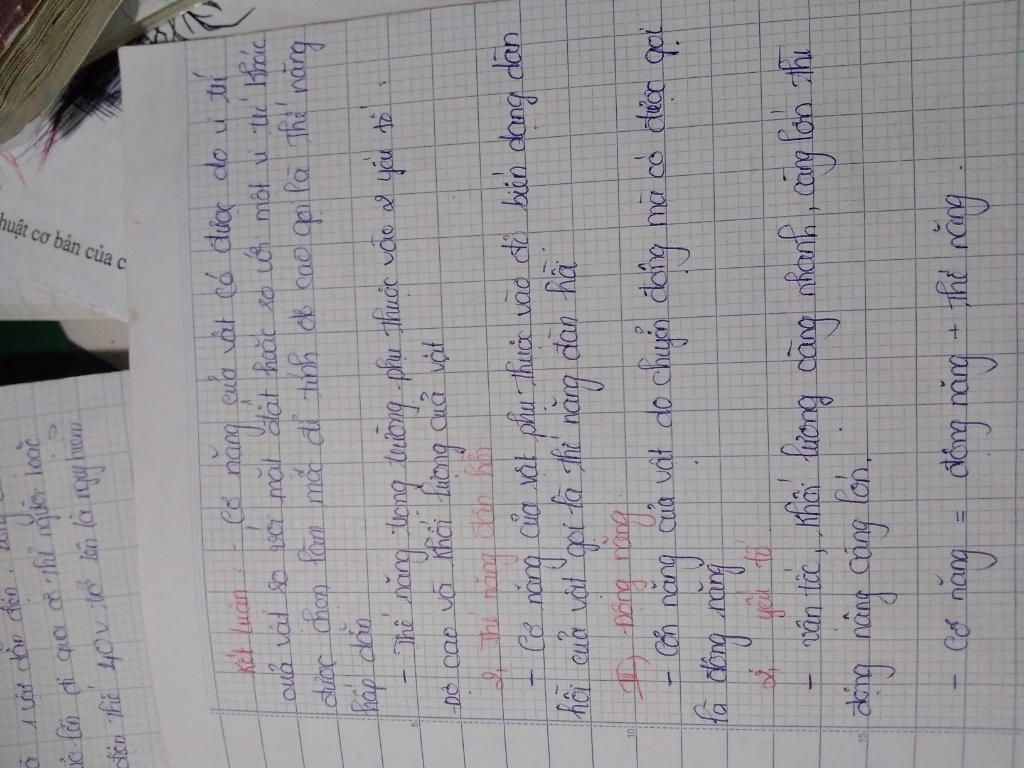 Kết luận: - Cơ năng của vật có được do vị trí
của vật so với mặt đất hoặc so với một vị trí khác
được chọn làm mốc để tính độ cao gọi là thế năng
hấp dẫn
- Thế năng trọng trường phụ thuộc vào 2 yếu tố:
Độ cao và khối lượng của vật
2, Thế năng đàn hồi
- Cơ năng của vật phụ thuộc vào độ biến dạng đàn
hồi của vật gọi là thế năng đàn hồi
III) Động năng
- Cơ năng của vật do chuyển động mà có được gọi
là động năng
2, yếu tố
- vận tốc, khối lượng càng nhanh, càng lớn thì
động năng càng lớn.
- Cơ năng = động năng + thế năng.
huật cơ bản của c
1 vật dẫn điện
đi qua cơ thể người hoặc
điện thế 40V trở lên là nguy hiểm
5
10
15